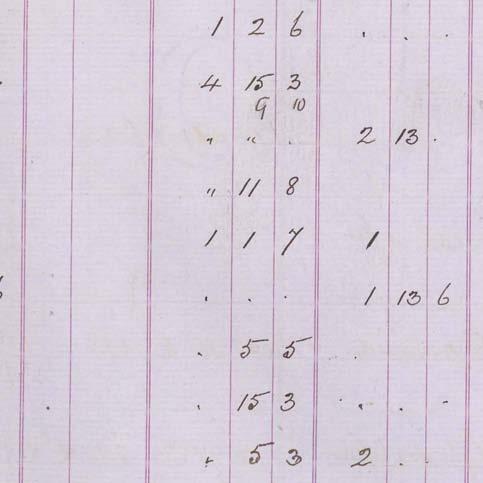 1 2 6 . . .
4 15 3
9 10
" " . 2 13 .
" 11 8
1 1 7 1
. . . 1 13 6
. 5 5 .
. . 15 3 . . -
. 5 3 2 .